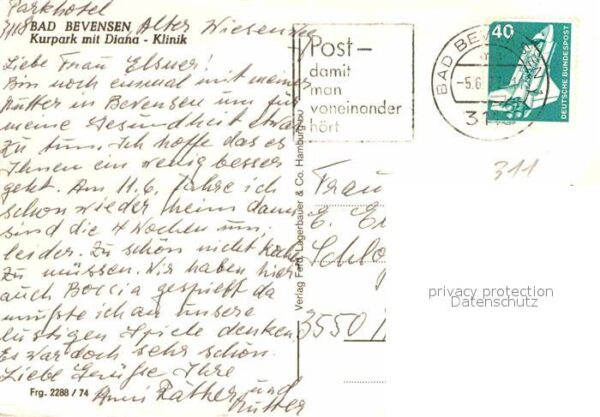 Parkhotel
3118 BAD BEVENSEN Alter Wiesenweg
Kurpark mit Diana - Klinik
Liebe Frau Elsner!
Bin noch einmal mit meiner
Mutter in Bevensen um für
meine Gesundheit etwas
zu tun. Ich hoffe das es
Ihnen ein wenig besser
geht. Am 11.6. fahre ich
schon wieder heim dann
sind die 4 Wochen um,
leider. Zu schön nicht
zu müssen. Wir haben hier
auch Boccia gespielt da
mußte ich an unsere
lustigen Spiele denken.
Es war doch sehr schön.
Liebe Grüße Ihre
Anni Räther und
Mutter
Frg. 2288 / 74
Verlag Ferd. Lagerbauer & Co. Hamburg
Post-
damit
man
voneinander
hört
BAD BEVEN
-5.6.
311
40
DEUTSCHE BUNDESPOST
311
Frau
E. El
Schlo
3550
privacy protection
Datenschutz